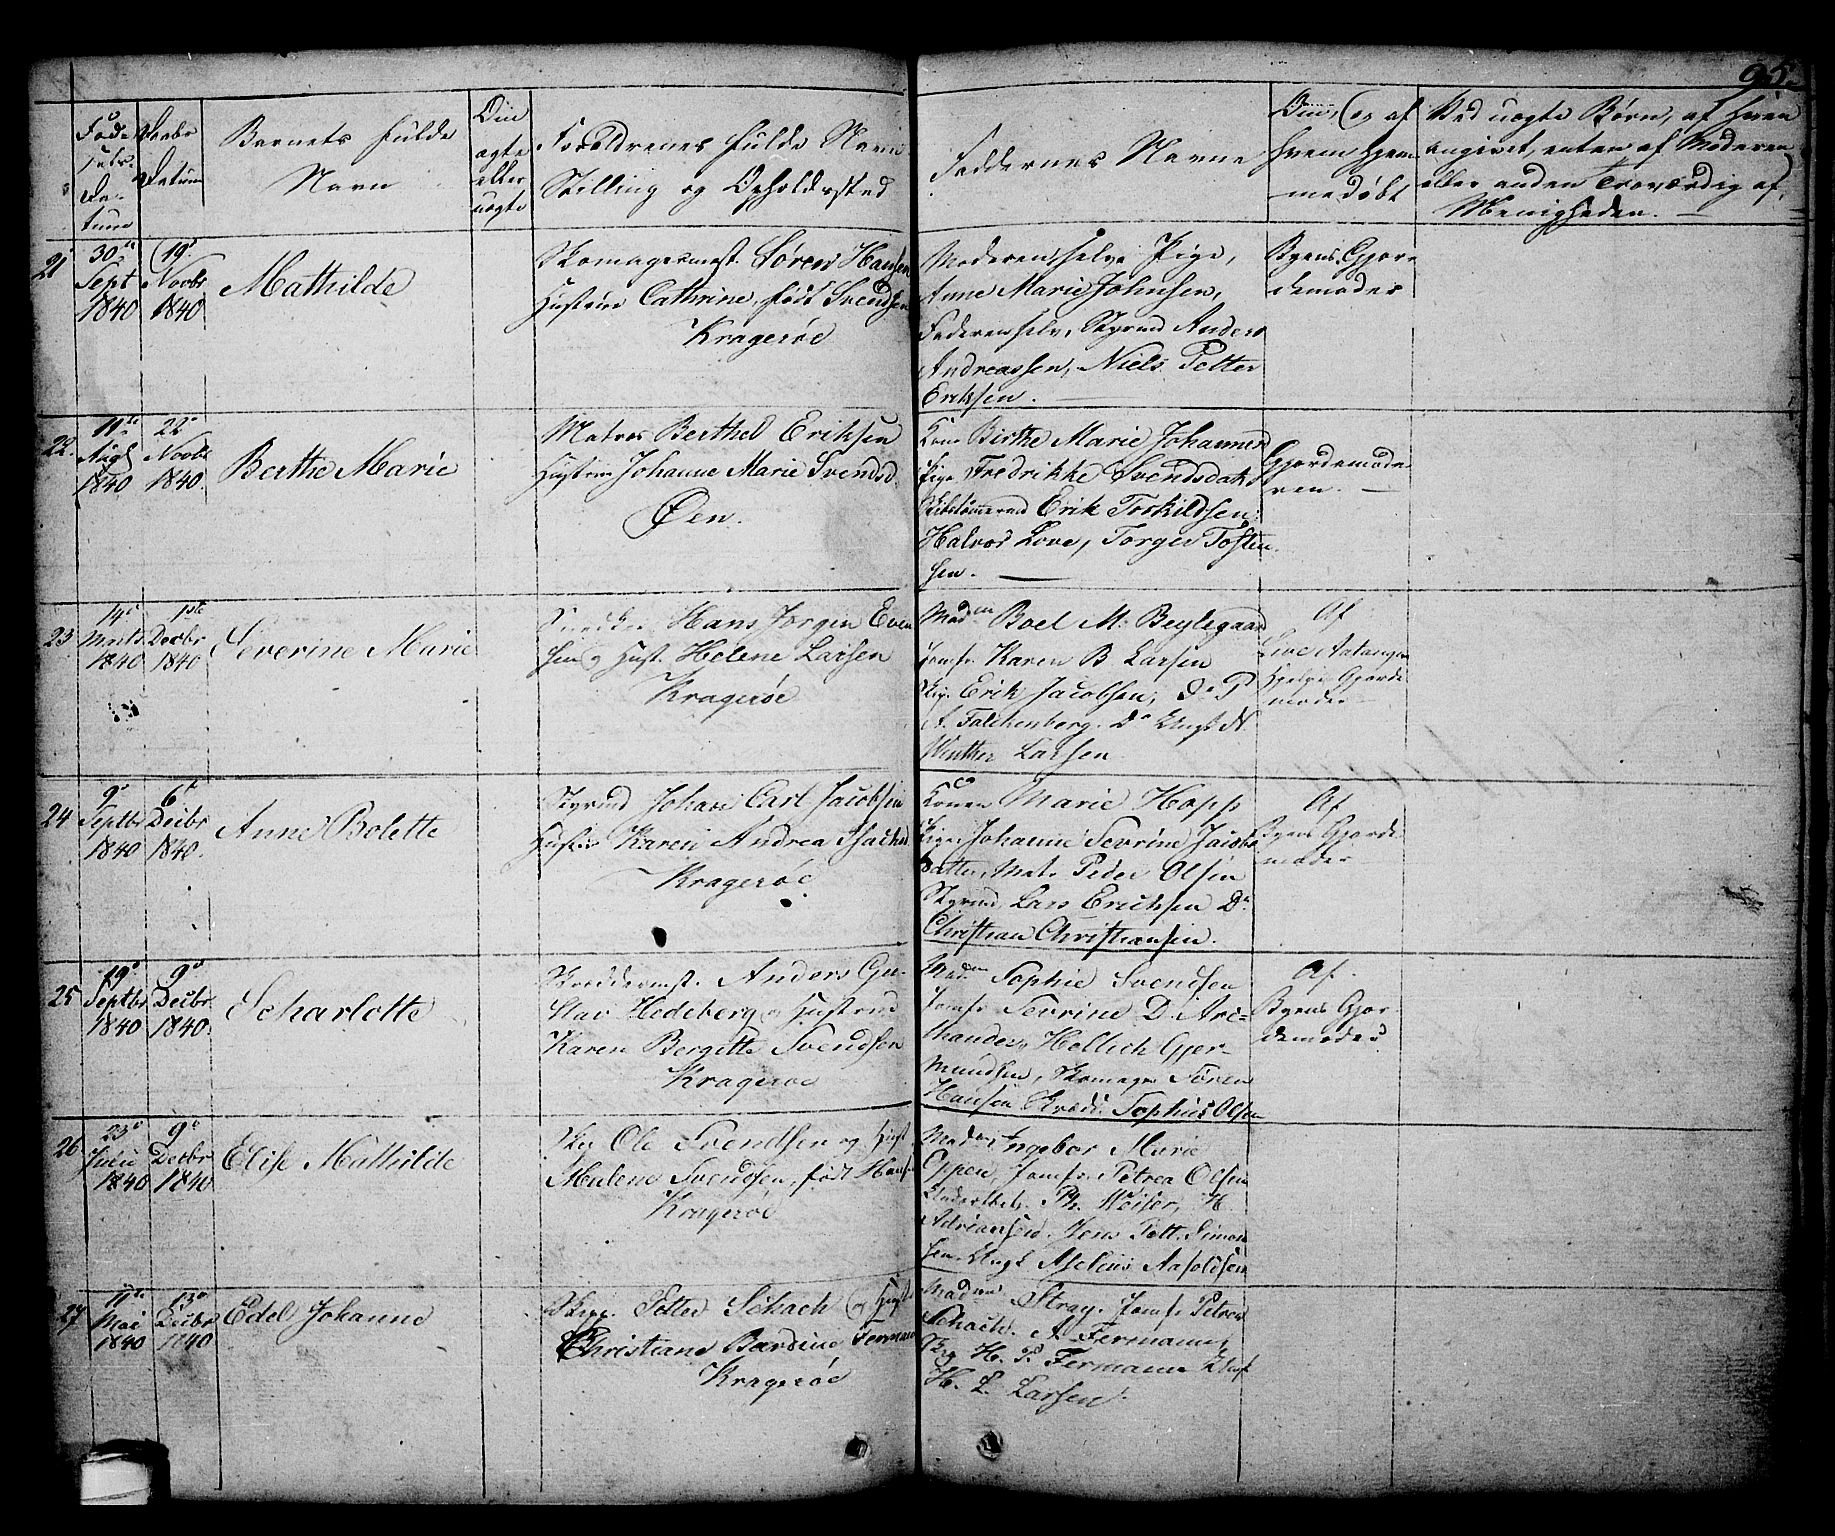 95.
Barnets fulde
Navn
Om
ægte
eller
uægte
Forældrenes fulde Navn
Stilling og Opholdssted
Faddernes Navne
Om, og af
hvem hjem
medøbt
Ved uægte Børn, af hvem
angivet, enten af Moderen
eller anden Troværdig af
Menigheden. —
21
30te
Sept
1840
19de
Novbr
1840
Mathilde
Skomagermest. Søren Hansen
Hustrue Cathrine, født Svendsen
Kragerøe
Moderen selv, Pige,
Anne Marie Johnsen,
Faderen selv, Styrmd Anders
Andreassen, Niels Petter
Eriksen. —
Byens Gjor-
demoder
22.
19te
Augs
1840
22de
Novbr
1840.
Berthe Marie
Matros Berthel Eriksen
Hustrue Johanne Marie Svendsd.
Øen.
Kone Birthe Marie Johannes
Pige Fredrikke Svendsdatt
Erik Torkildsen
Halvor Love, Torger Tosten
sen. —
Gjordemode-
ren. —
23
14de
1840
1ste
Decbr
1840
Severine Marie
Snedker Hans Jørgen Even
sen og Hust. Helene Larsen
Kragerøe
Madm Boel M. Beylegaard
Jomfr Karen B Larsen
Erik Jacobsen, Do P
A. Falckenberg. Do Ungk N
Winther Larsen
Af
Hjelpe Gjorde
moder
24
9de
Septbr
1840
6te
Decbr
1840.
Anne Bolette
Styrmd Johan Carl Jacobsen
Hustrue Karen Andrea Isachsd
Kragerøe
Konen Marie Hopp
Pige Johanne Sevrine Jacobs
datter, Mat. Peder Olsen
Styrmd Lars Ericksen Do
Christian Christiansen.
Af
Byens Gjorde
moder
25
19de
Septbr
1840
9de
Decbr
1840.
Scharlotte
Skreddermst. Anders Gu-
stav Hedeberg og Hustrue
Karen Bergitte Svendsen
Kragerøe
Madm Sophie Svendsen
Jomfr Sevrine D. Ari-
mander, Hellich Gjer-
mundsen, Skomager Søren
Hansen Skred. Sophus Olsen
Af.
Byens Gjor-
demoder
26
23de
Julii
1840
9de
Decbr
1840
Elise Mathilde
Ole Svendsen og Hust.
Malene Svendsen, født Hans
Kragerøe
Madm Ingebor Marie
Eppen, Jomfr. Petrea Olsen
Ph. Weiser, H.
Adriansen. Jens Pett. Simon
sen. Ungk Aselius Aasoldsen
27
11te
Mai
1840
13de
Decbr
1840
Edel Johanne
Petter Schach og Hust
Christiane Bardine Ferman
Kragerøe
Madm Stray. Jomfr Petrea
Schach. A. Fermann,
H. P. Fermann Ungk
H. L. Larsen.